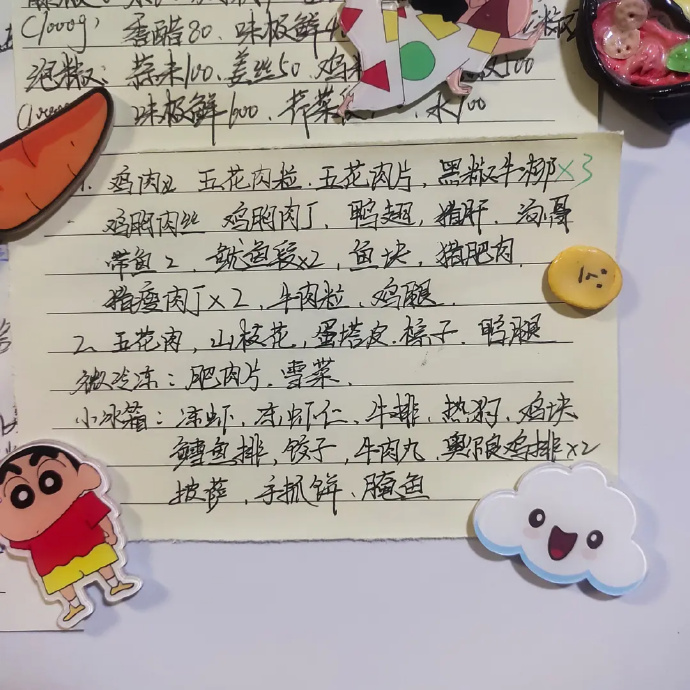 (1000g) 香醋80、味极鲜4
泡 蒜末100、姜丝50、鸡 100
味极鲜600、芹菜 水100
1. 鸡肉 五花肉粒、五花肉片、黑椒牛柳×3
鸡胸肉丝 鸡胸肉丁、鸭翅、猪肝、
带鱼2、鱿鱼段×2、鱼块、猪肥肉
猪瘦肉丁×2、牛肉粒、鸡腿
2、五花肉、山枝花、蛋塔皮、粽子、鸭腿
微冷冻:肥肉片、雪菜、
小冰箱:冻虾、冻虾仁、牛排、热狗、鸡块
鳕鱼排、饺子、牛肉丸、奥尔良鸡排×2
披萨、手抓饼、腌鱼